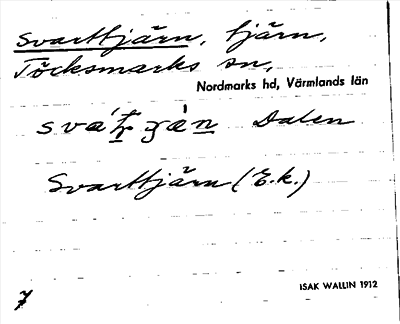 Svarttjärn, tjärn,
Töcksmarks sn,
Nordmarks hd, Värmlands län
Dalen
Svarttjärn (E.k.)
ISAK WALLIN 1912
7